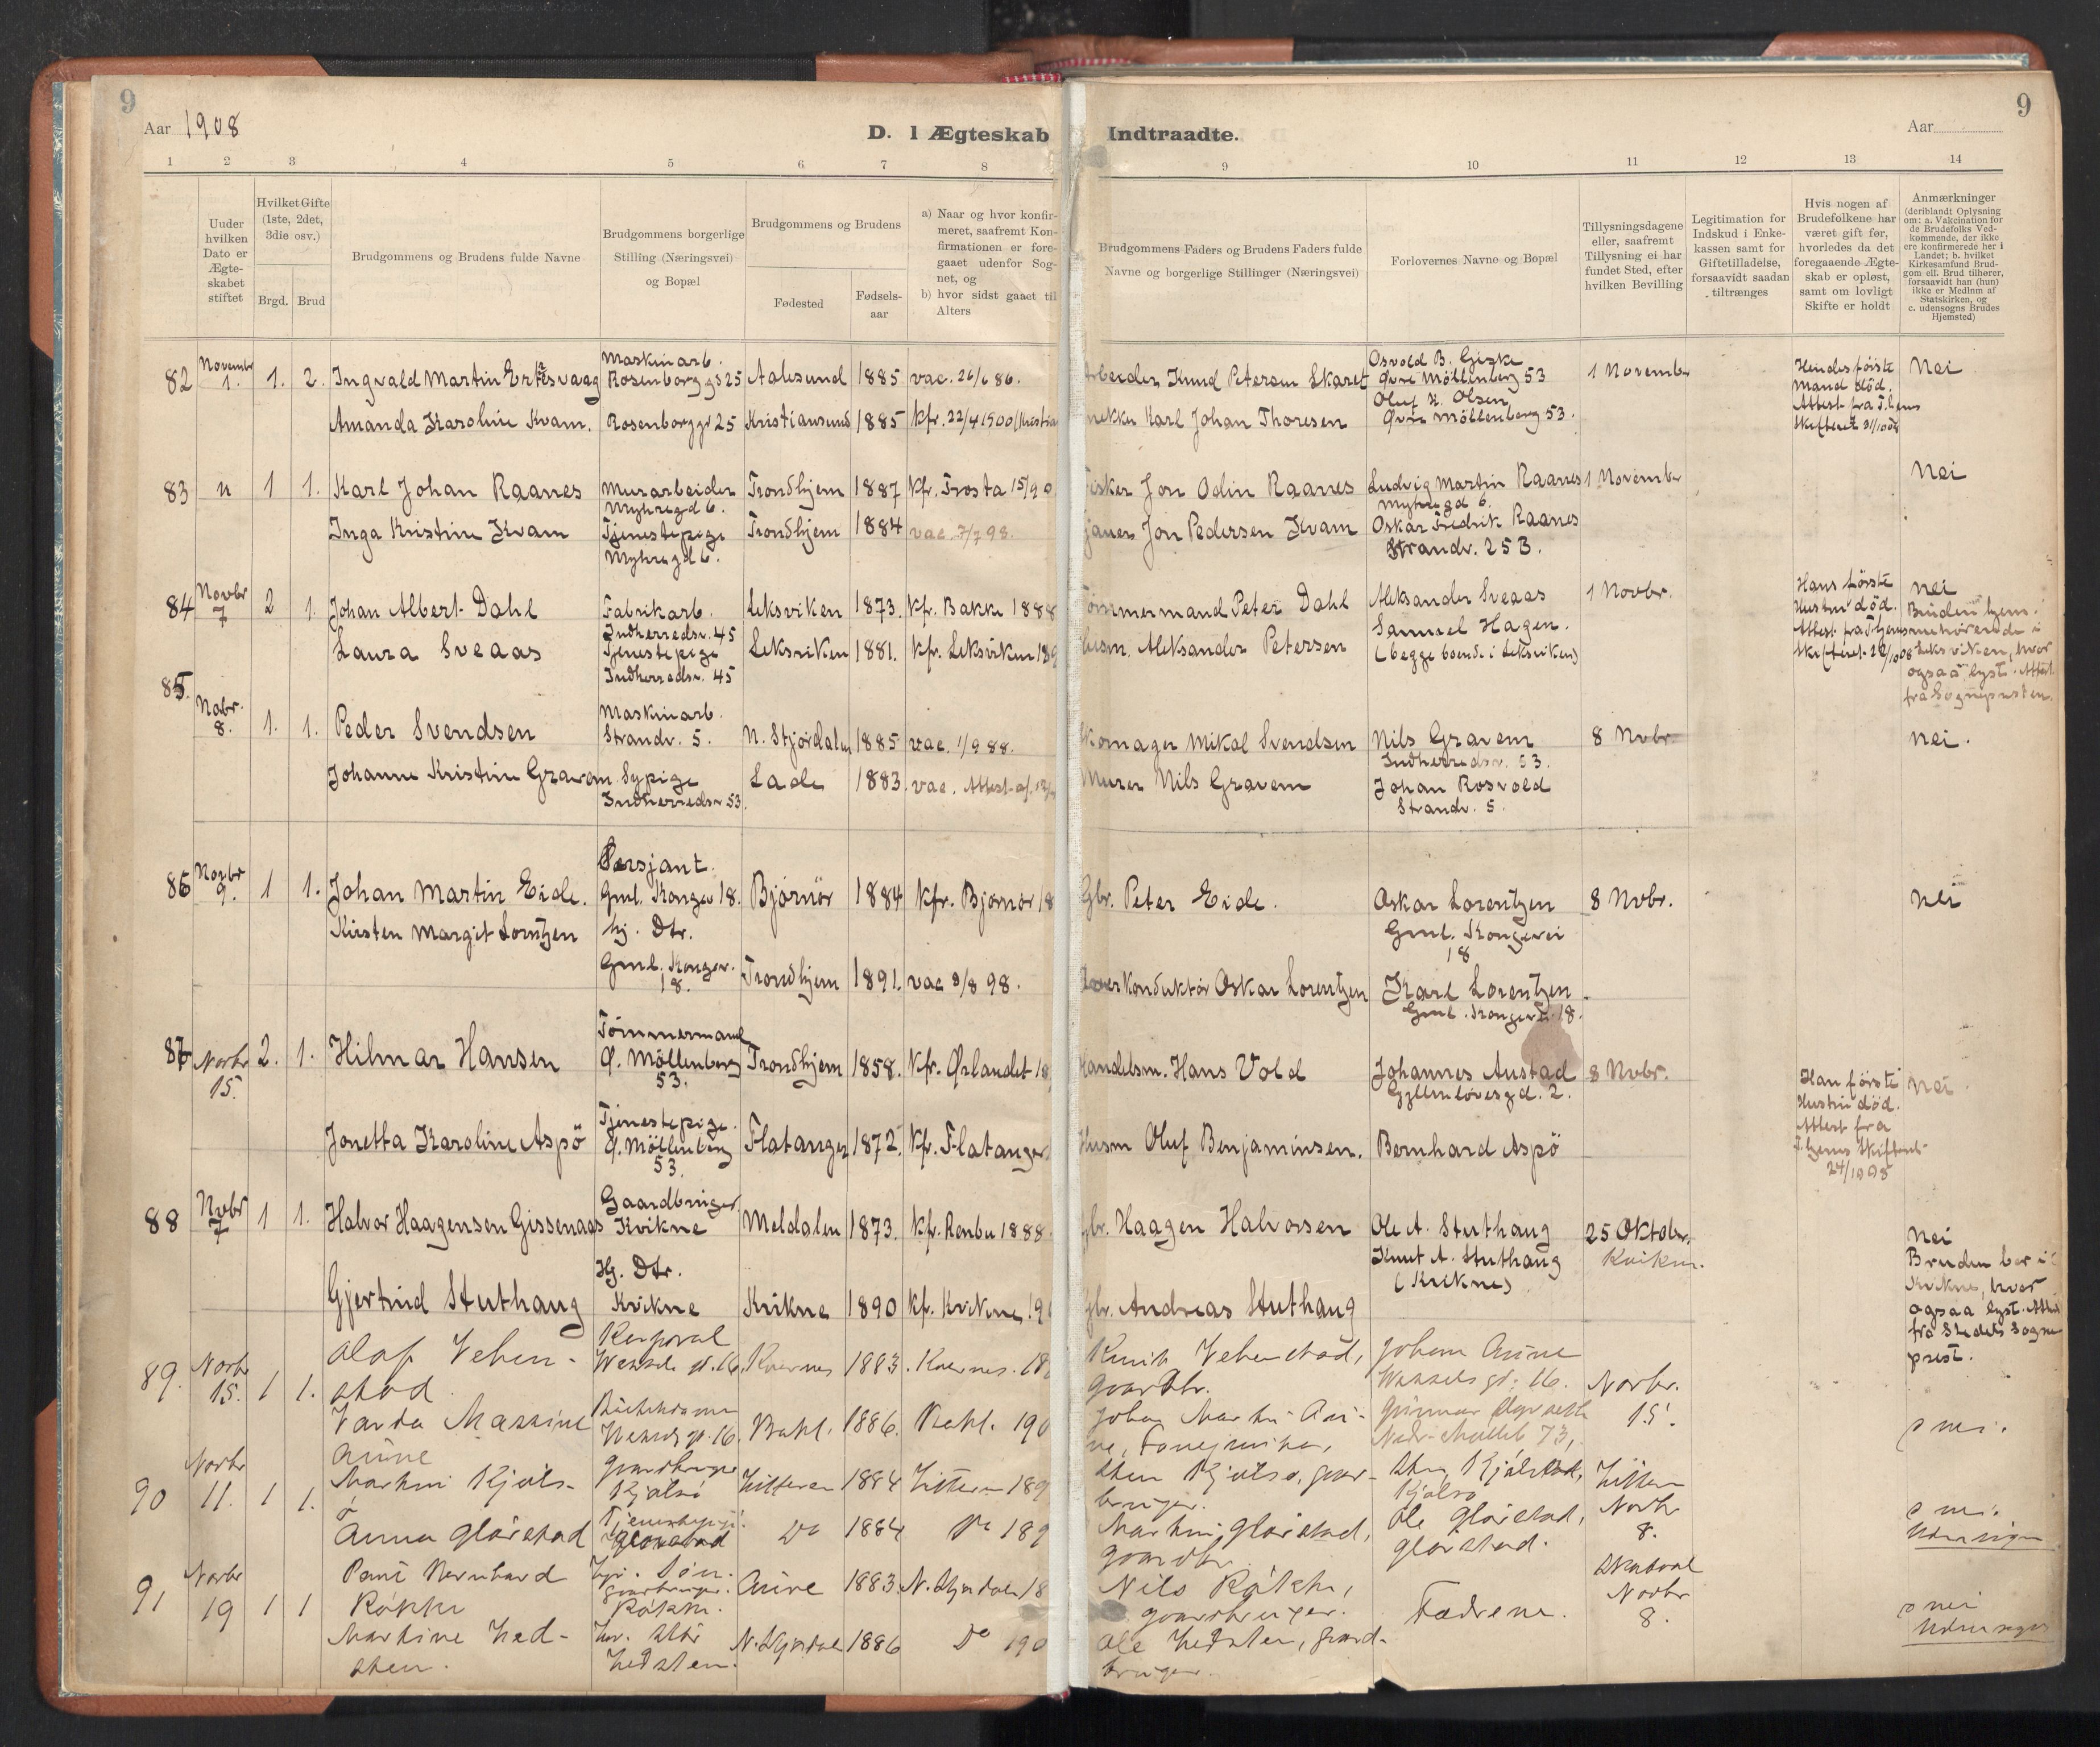 9
9
Aar 1908
D. I Ægteskab
Indtraadte.
Aar
1 2 3 4 5 6 7 8
9 10 11 12 13 14
Under hvilken Dato er Ægte-skabet stiftet
Hvilket Gifte (1ste, 2det, 3die osv.)
Brgd. Brud
Brudgommens og Brudens fulde Navne
Brudgommens borgerlige Stilling (Næringsvei) og Bopæl
Brudgommens og Brudens
Fødested
Fødsels-aar
a) Naar og hvor konfir-meret, saafremt Kon-firmationen er fore-gaaet udenfor Sog-net, og
b) hvor sidst gaaet til Alters
Brudgommens Faders og Brudens Faders fulde Navne og borgerlige Stillinger (Næringsvei)
Forlovernes Navne og Bopæl
Tillysningsdagene eller, saafremt Tillysning ei har fundet Sted, efter hvilken Bevilling
Legitimation for Indskud i Enke-kassen samt for Giftetilladelse, forsaavidt saadan tiltrænges
Hvis nogen af Brudefolkene har været gift før, hvorledes da det foregaaende Ægte-skab er opløst, samt om lovligt Skifte er holdt
Anmærkninger (deriblandt Oplysning om: a. Vakcination for de Brudefolks Ved-kommende, der ikke ere konfirmerede her i Landet; b. hvilket Kirkesamfund Brud-gom ell. Brud tilhører, forsaavidt han (hun) ikke er Medlnm af Statskirken, og c. udensogns Brudes Hjemsted)
82 Novembr 1. 1. 2. Ingvald Martin Ertesvaag Maskinarb. Rosenborg gd 25 Aalesund 1885 vac. 26/6 86.
Arbeider Knud Petersen Skaret Osvold B. Giske Øvre Möllenberg 53 1 November Hendes første Mand død. Attest fra T.hjems Skifteret 31/10 08 Nei
Amanda Karoline Kvam. Rosenborg gd 25 Kristiansund 1885 kfr. 22/4 1900 (Kristia
Karl Johan Thoresen Oluf K. Olsen Øvre Möllenberg 53.
83 " 1 1. Karl Johan Raanes Murarbeider Myhregd 6. Trondhjem 1887 kfr. Frosta 15/9 0
Fisker Jon Odin Raanes Ludvig Martin Raanes Myhregd 6. 1 November Nei
Inga Kristine Kvam Tjenestepige Myhregd 6. Trondhjem 1884 vac. 7/7 98.
Jon Pedersen Kvam Oskar Fredrik Raanes Strandv. 25 B.
84 Novbr 7 2 1. Johan Albert Dahl Fabrikarb. Indherredsv. 45 Leksviken 1873. kfr. Bakke 1888
Tømmermand Peter Dahl Aleksander Sveaas 1 Novbr. Hans første Hustru død. Attest fra T.hjems Skifteret 28/10 08 nei Bruden hjem-mehørende i Leksviken, hvor ogsaa lyst. Attest fra Sognepresten.
Laura Sveaas Tjenestepige Indherredsv. 45 Leksviken 1881. kfr. Leksviken 189
Husm. Aleksander Petersen Samuel Hagen. (begge boende i Leksviken)
85. Nobr. 8. 1. 1. Peder Svendsen Maskinarb. Strandv. 5. N. Stjørdalen 1885 vac. 1/9 88.
Skomager Mikal Svendsen Nils Gravem Indherredsv. 53. 8 Nvbr. nei.
Johanne Kristine Gravem. Sypige Indherredsv 53. Lade 1883. vac. Attest af 12/
Murer Nils Gravem Johan Rosvold Strandv. 5.
86 Novbr 9. 1 1. Johan Martin Eide. Sersjant. Gml. Kongev 18. Bjørnör 1884 kfr. Bjørnör 18
Gbr. Peter Eide. Oskar Lorentzen Gml. Kongevei 18 8 Nvbr. nei
Kirsten Margit Lorntzen hj. Dtr. Gml. Kongev. 18. Trondhjem 1891. vac 9/8 98.
Overkonduktör Oskar Lorentzen Karl Lorentzen Gml. Kongevei 18.
87 Novbr 15. 2. 1. Hilmar Hansen Tömmermand Ø. Möllenberg 53. Trondhjem 1858. kfr. Ørlandet 18
Handelsm. Hans Vold Johannes Austad Gyllenløvesgd. 2. 8 Nvbr. Han første Hustru død. Attest fra T.hjems Skifteret 24/10 08 nei.
Jonetta Karoline Aspö Tjenestepige. Ø. Möllenberg 53. Flatanger 1872. kfr. Flatanger
Husm Oluf Benjaminsen. Bernhard Aspö
88 Nvbr 7 1 1. Halvor Haagensen Gissenaas Gaardbruger Kvikne Meldalen 1873. kfr. Renbu 1888.
Gbr. Haagen Halvorsen Ole A. Stuthaug 25 Oktober. Kvikne. nei Bruden bor i Kvikne, hvor ogsaa lyst. Attest fra Stedets Sogne prest.
Gjertrud Stuthaug Hj. Dtr. Kvikne Kvikne 1890 kfr. Kvikne 190
Gbr. Andreas Stuthaug Knut A. Stuthaug (Kvikne)
89. Novbr 15. 1 1. Olaf Veben-stad. Korporal Wessels gt. 16. Kvernes 1883. Kvernes. 18
Knut Vebenstad, Gaardbr. Johan Aune Wessels gt. 16. Novbr. 15. nei.
Varda Maxine Aune Wessels gt. 16. Bakl. 1886. Bakl. 190
Johan Martin Au-ne, Gunnar Nedr. Møllebl 73,
90 Novbr 11. 1 1. Martin Kjøls-ø Gaardbruger Kjølsø Hitteren 1884 Hitteren 189
Sten Kjølsø, gaar-bruger. Kjølsø Hitteren Novbr 8. nei.
Anna Glørstad Tjenestepige Glørstad Do 1884 Do 189
Martin Glørstad, gaardbr. Ole Glørstad, Glørstad. Udensogns
91 Novbr 19 1 1 Paul Bernhard Røkke Hj. Søn. gaardbruger. Røkke. Aure 1883. N. Stjørdalen 18
Nils Røkke, gaardbruger. Fædrene. Skatval Novbr 8. nei
Martine Hed-sten. Hedsten. N. Stjørdalen 1886 Do 190
Ole Hedsten, gaard-bruger. Udensogns